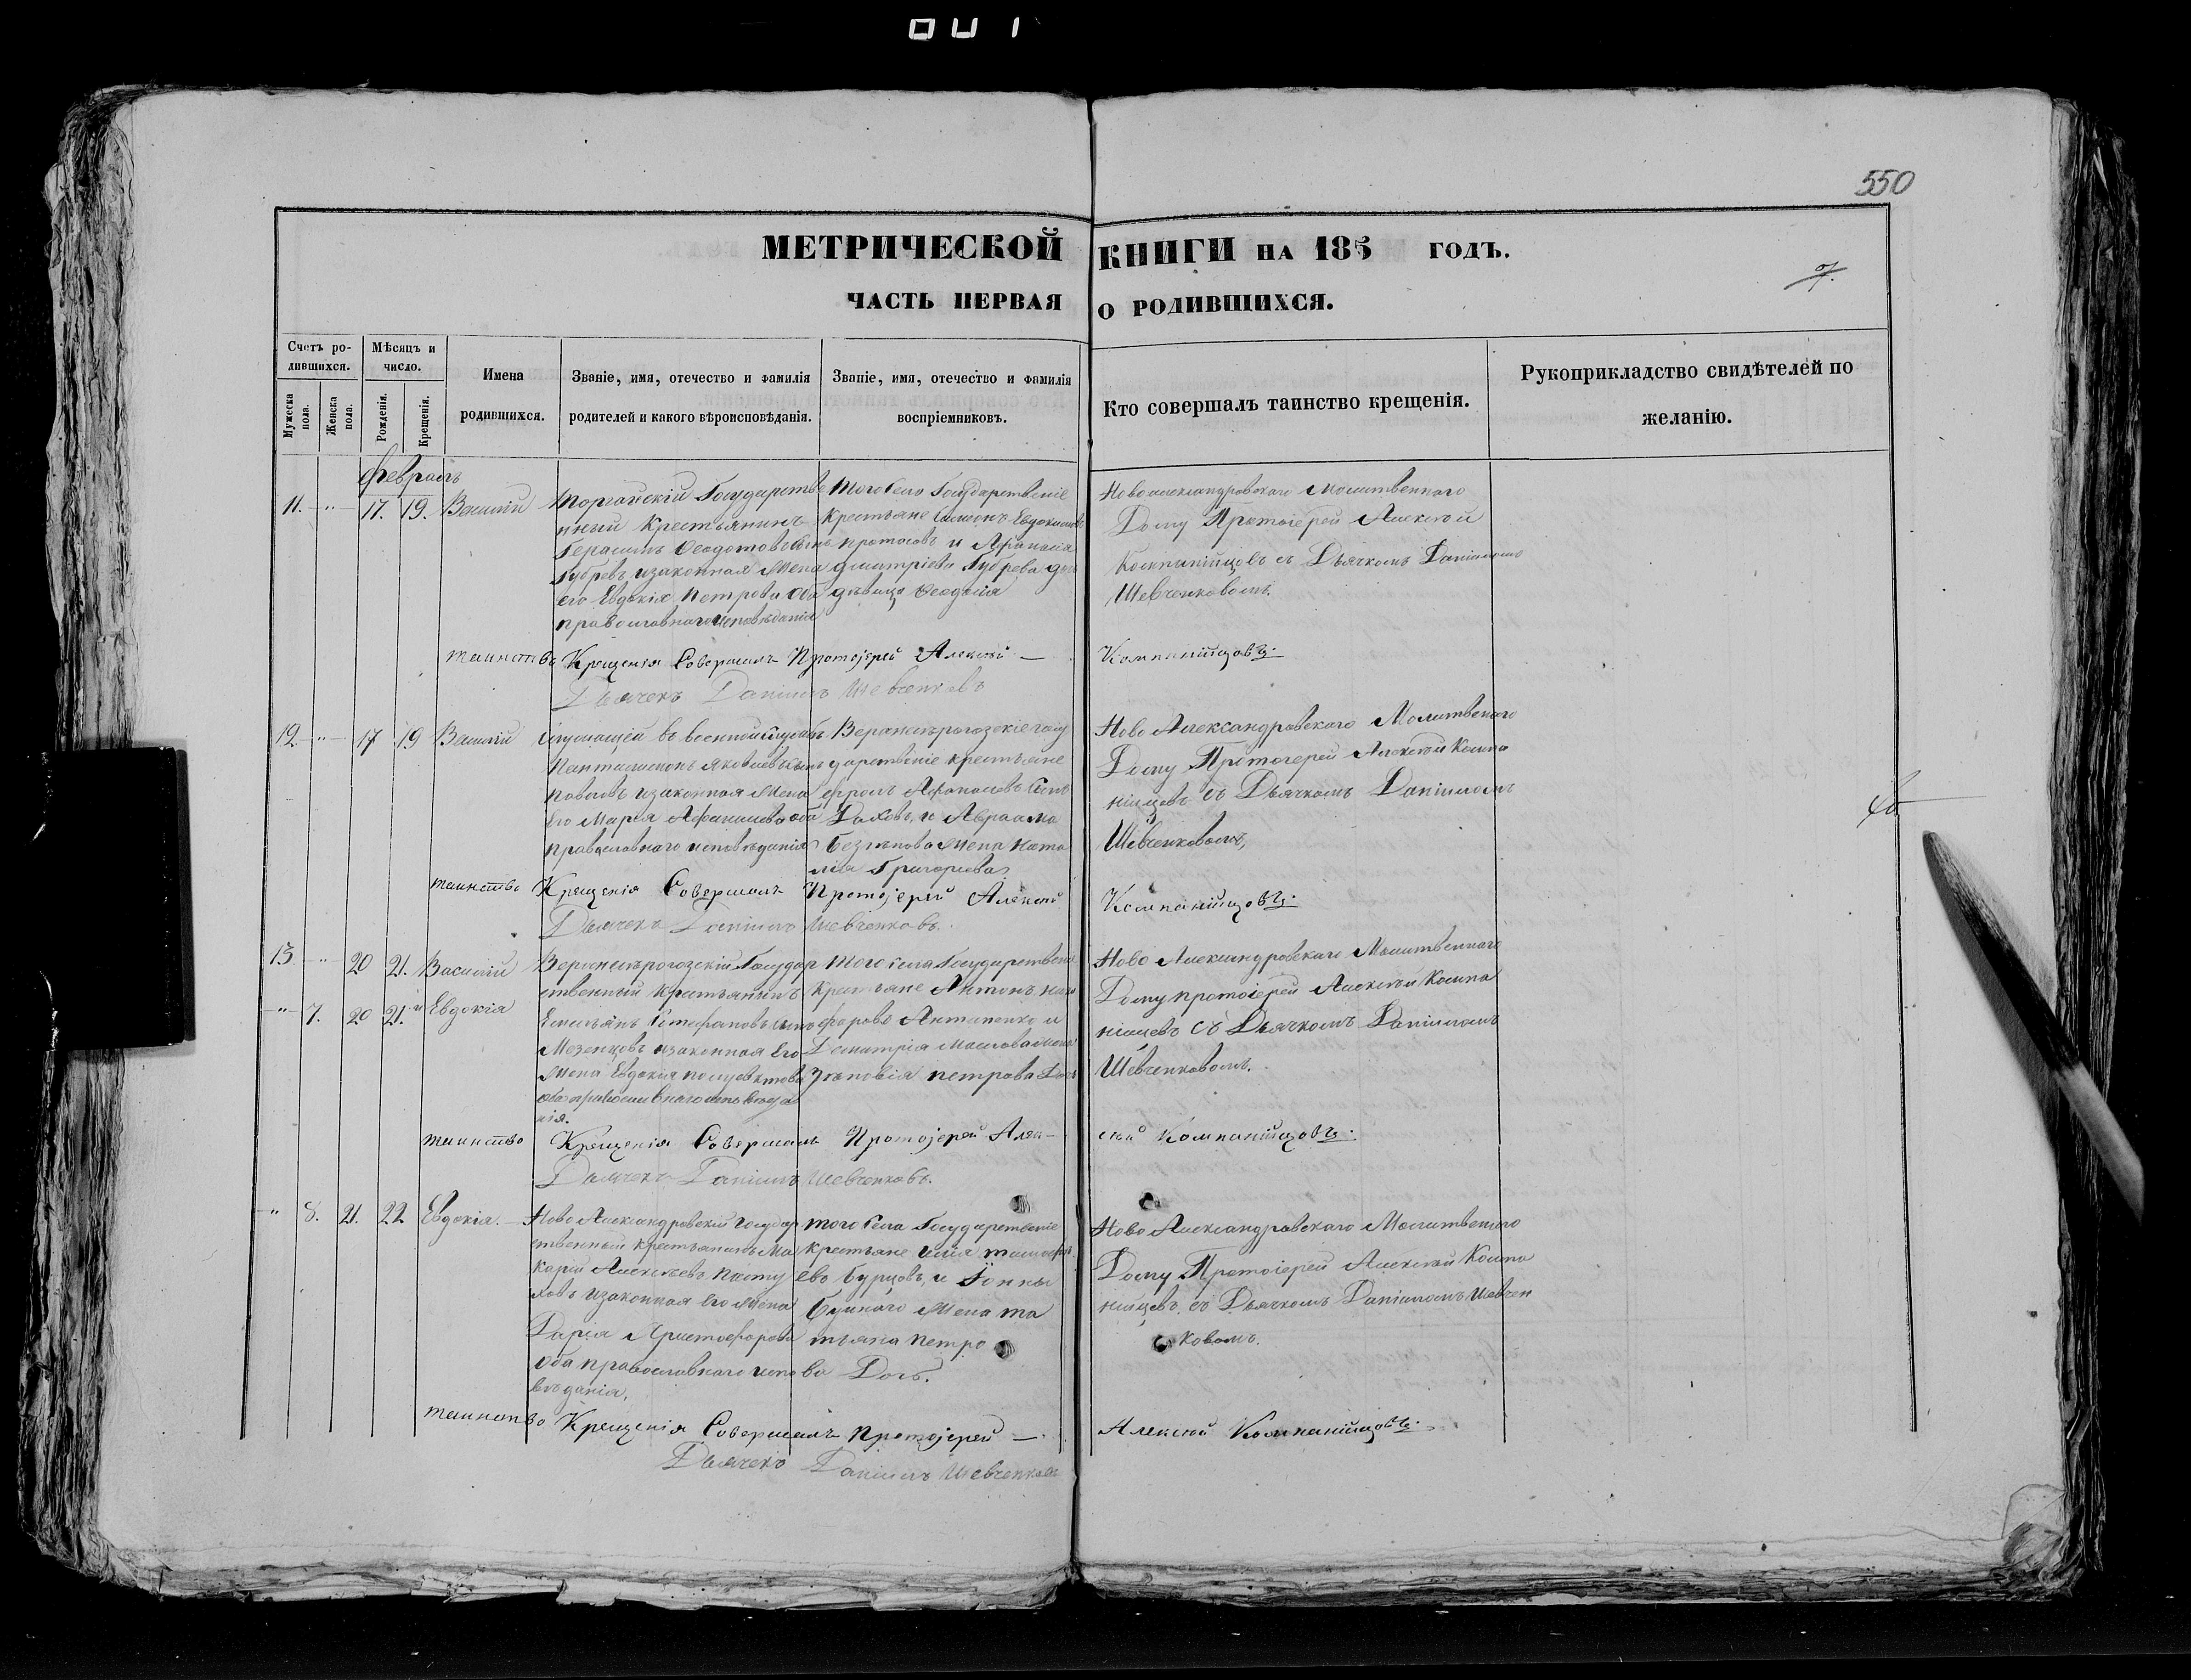 550
МЕТРИЧЕСКОЙ КНИГИ НА 185 ГОДЪ.
7.
ЧАСТЬ ПЕРВАЯ О РОДИВШИХСЯ.
Счетъ родившихся.
Мужеска пола.
Женска пола.
Мѣсяцъ и число.
Рожденія.
Крещенія.
Имена родившихся.
Званіе, имя, отечество и фамилія родителей и какого вѣроисповѣданія.
Званіе, имя, отечество и фамилія воспріемниковъ.
Кто совершалъ таинство крещенія.
Рукоприкладство свидѣтелей по желанію.
Февраль
11. " 17. 19. Василій
Торгайскій Государстве
нный Крестьянинъ
Герасимъ Ѳеодотовъ Сынъ
Губревъ изаконная Жена
его Евдокія Петрова Оба
православнаго исповѣданія
Того Села Государственіе
Крестьяне Симеонъ Евдокимовъ
Протосовъ и Афанасія
Дмитріева Губрева дочь
дѣвица Ѳеодосія
Новоалександровскаго Молитвеннаго
Дому Протоіерей Алексѣй
Компанійцовъ съ Дьячкомъ Даніиломъ
Шевченковомъ.
таинство Крещенія Совершалъ Протоіерей Алексѣй — Компанійцовъ.
Дьячекъ Даніилъ Шевченковъ
12 " 17 19 Василій
въ военной службѣ
Пантелимонъ Яковлевъ Сынъ
изаконная Жена
Его Марѳа Афанасьева оба
православнаго исповѣданія
Верхнѣрогозскіе госу
дарственіе крестьяне
Афанасовъ Сынъ
и Авраама
Жена Ната
лія Григорьева
Ново Александровскаго Молитвенаго
Дому Протоіерей Алексѣй Компа
нійцевъ съ Дьячкомъ Даніиломъ
Шевченковомъ,
таинство Крещенія Совершалъ Протоіерей Алексѣй Компанійцовъ.
Дьячекъ Даніилъ Шевченковъ.
13 " 20 21. Василій
" 7. 20 21. и Евдокія
Верхнѣрогозскій Государ
ственный Крестьянинъ
Емельянъ Стефановъ сынъ
Мезенцовъ изаконная Его
Жена Евдокія
оба православнаго исповѣда
нія.
Того села Государствен
Крестьяне Антонъ Ники
форовъ Антипенко и
Димитрія Маслова жена
Зѣновія петрова Дочь
Ново Александровскаго Молитвеннаго
Дому протоіерей Алексѣй Компа
ніицевъ съ Дьячкомъ Даніиломъ
Шевченковомъ.
таинство Крещенія Совершалъ Протоіерей Алек— сѣй Компанійцовъ.
Дьячекъ Даніилъ Шевченковъ.
" 8. 21. 22 Евдокія.
Ново Александровскій Государ
ственный крестьянинъ Ма
карій Алексѣевъ Пасту
ховъ изаконная Его Жена
Дарія Христофорова
Оба православнаго испо
вѣданія.
того Села Государственіе
крестьяне Илія Тимофѣ
евъ Бурцовъ, и Іонны
Жена Та
тьяна Петро
ва Дочь.
Ново Александровскаго Молитвенаго
Дому Протоіерей Алексѣй Компа
нійцевъ, съ Дьячкомъ Даніиломъ Шевчен
ковомъ.
таинство Крещенія Совершалъ Протоіерей — Алексѣй Компанійцовъ.
Дьячекъ Даніилъ Шевченковъ